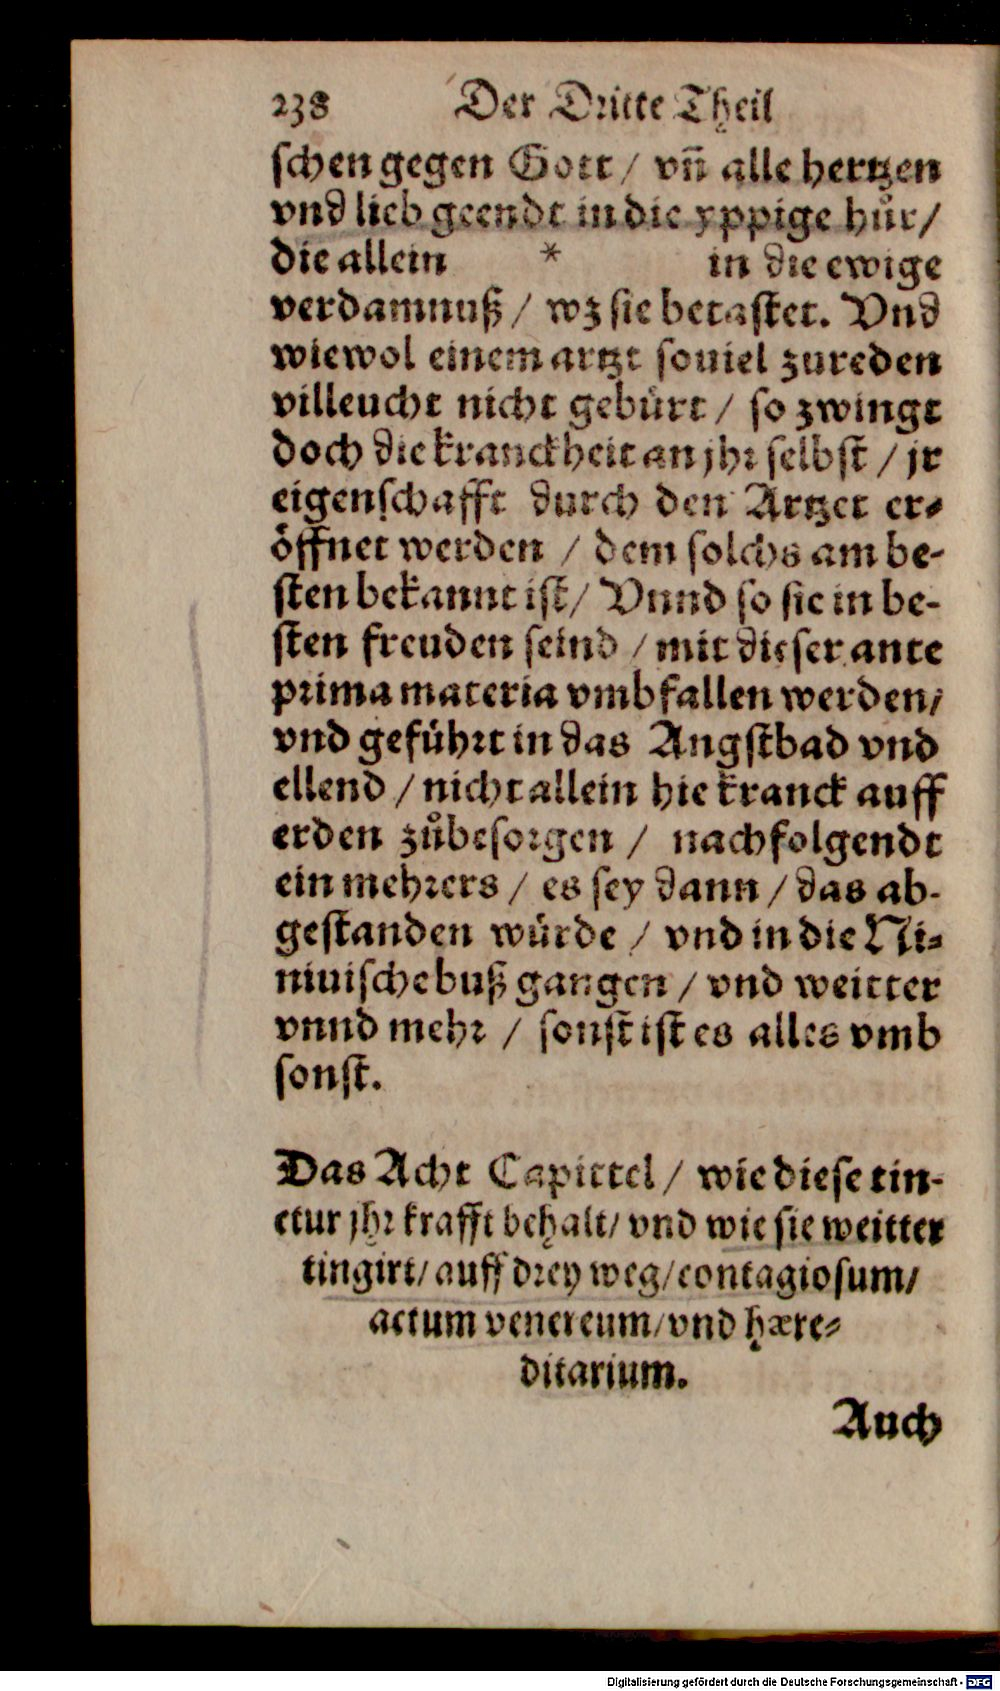 238 Der Dritte Theil
schen gegen Gott / vñ alle hertzen
vnd lieb geendt in die yppige hůr/
die allein * in die ewige
verdamnuß / wz sie betastet. Vnd
wiewol einem artzt souiel zureden
villeucht nicht gebürt / so zwingt
doch die kranckheit an jhr selbst / jr
eigenschafft durch den Artzet er-
öffnet werden / dem solchs am be-
sten bekannt ist/ Vnnd so sie in be-
sten freuden seind / mit dieser ante
prima materia vmbfallen werden/
vnd geführt in das Angstbad vnd
ellend / nicht allein hie kranck auff
erden zůbesorgen / nachfolgendt
ein mehrers / es sey dann / das ab-
gestanden würde / vnd in die Ni-
niuische buß gangen / vnd weitter
vnnd mehr / sonst ist es alles vmb
sonst.
Das Acht Capittel / wie diese tin-
ctur jhr krafft behalt/ vnd wie sie weitter
tingirt/ auff drey weg/contagiosum/
actum venereum/vnd hære-
ditarium.
Auch
Digitalisierung gefördert durch die Deutsche Forschungsgemeinschaft - DFG